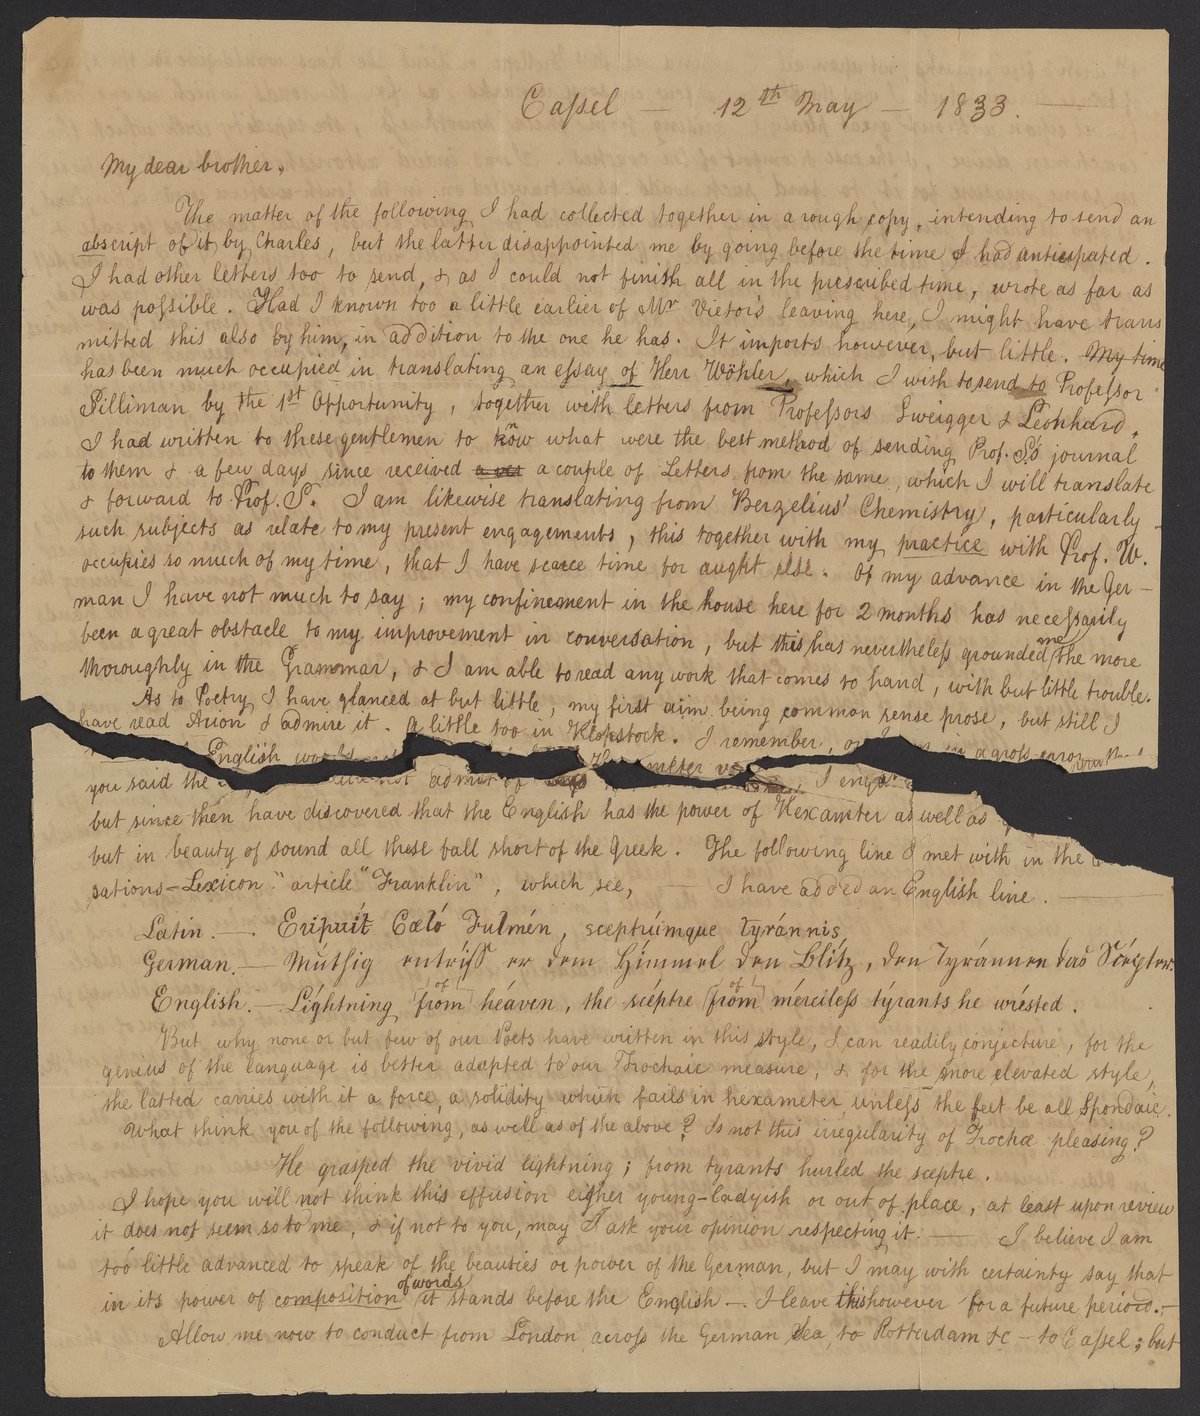 Cassel — 12th May — 1833.
My dear brother.
The matter of the following I had collected together in a rough copy, intending to send an
abscript of it by Charles, but the latter disappointed me by going before the time I had anticipated.
I had other letters too to send, & as I could not finish all in the prescribed time, wrote as far as
was possible. Had I known too a little earlier of Mr Vietor's leaving here, I might have trans
mitted this also by him, in addition to the one he has. It imports however, but little. My time
has been much occupied in translating an essay of Herr Wöhler, which I wish to send to Professor
Silliman by the 1st Opportunity, together with letters from Professors Sweigger & Leonhard.
I had written to these gentlemen to know what were the best method of sending Prof. S's journal
to them & a few days since received a couple of Letters from the same, which I will translate
& forward to Prof. S. I am likewise translating from Berzelius' Chemistry, particularly
such subjects as relate to my present engagements, this together with my practice with Prof. W.
occupies so much of my time, that I have scarce time for aught else. Of my advance in the Ger—
man I have not much to say; my confinement in the house here for 2 months has necessarily
been a great obstacle to my improvement in conversation, but this has nevertheless grounded me the more
thoroughly in the Grammar, & I am able to read any work that comes to hand, with but little trouble.
As to Poetry I have glanced at but little, my first aim being common sense prose, but still I
have read Arion & admire it. A little too in Klopstock. I remember, or in a gross error
English
you said the not admit of Hexameter
but since then have discovered that the English has the power of Hexameter as well as
but in beauty of sound all these fall short of the Greek. The following line I met with in the
sations–Lexicon" article "Franklin", which see, — I have added an English line. —
Latin. — Eripuít Cæló Fulmén, sceptrúmque tyránnis,
German. — Múthig entríss er dem Hímmel den Blítz, den Tyránnen das Scépter.
English. — Líghtning from of héaven, the scéptre from of mérciless týrants he wrésted.
But why none or but few of our Poets have written in this style, I can readily conjecture, for the
genius of the language is better adapted to our Trochaic measure, & for the more elevated style,
the latted carries with it a force, a solidity which fails in hexameter, unless the feet be all Spondaic.
What think you of the following, as well as of the above? Is not this irregularity of Trochæ pleasing?
He grasped the vivid lightning; from tyrants hurled the sceptre.
I hope you will not think this effusion either young–ladyish or out of place, at least upon review
it does not seem so to me, & if not to you, may I ask your opinion respecting it. — I believe I am
too little advanced to speak of the beauties or power of the German, but I may with certainty say that
in its power of composition of words it stands before the English —. I leave this however for a future period. —
Allow me now to conduct from London across the German Sea, to Rotterdam &c — to Cassel; but